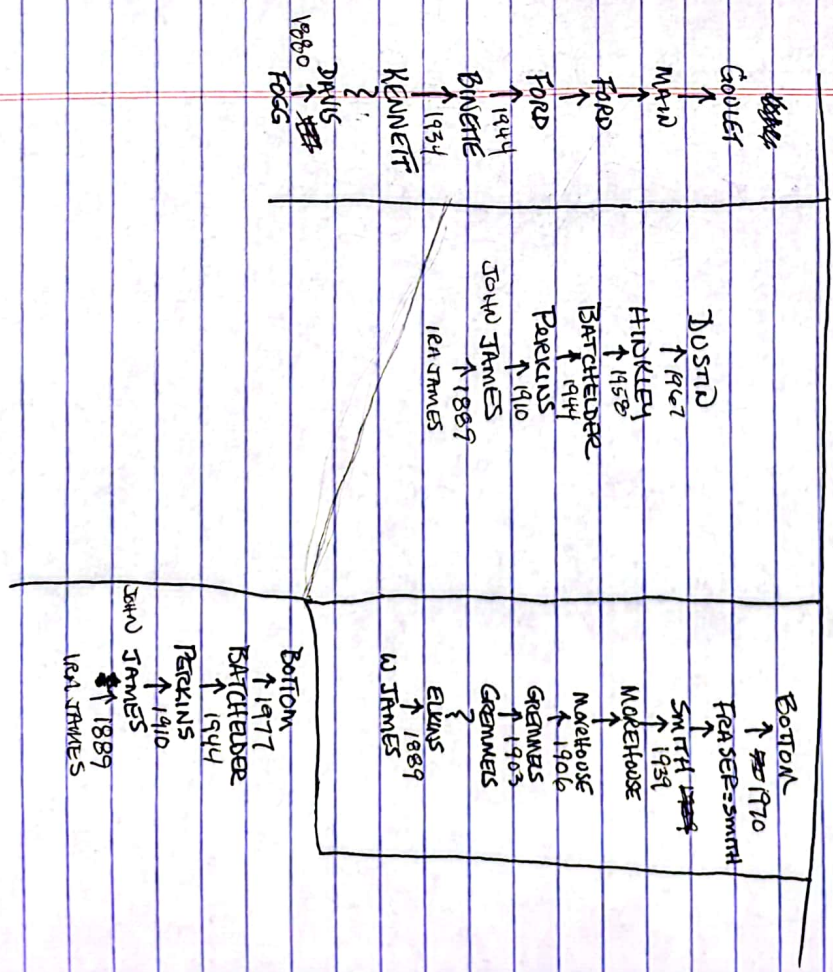 GOULET
↑
MAIN
↑
FORD
↑
FORD
↑ 1944
BINETTE
↑ 1934
KENNETT
DAVIS
1880 ↑
FOGG
DUSTIN
↑ 1967
HINKLEY
↑ 1958
BATCHELDER
↑ 1944
PERKINS
↑ 1910
JOHN JAMES
↑ 1889
IRA JAMES
BOTTOM
↑ 1970
FRASER=SMITH
↑
SMITH
↑ 1939
MOREHOUSE
↑
MOREHOUSE
↑ 1906
↑ 1903
ELKINS
↑ 1889
W JAMES
BOTTOM
↑ 1977
BATCHELDER
↑ 1944
PERKINS
↑ 1910
JOHN JAMES
↑ 1889
IRA JAMES